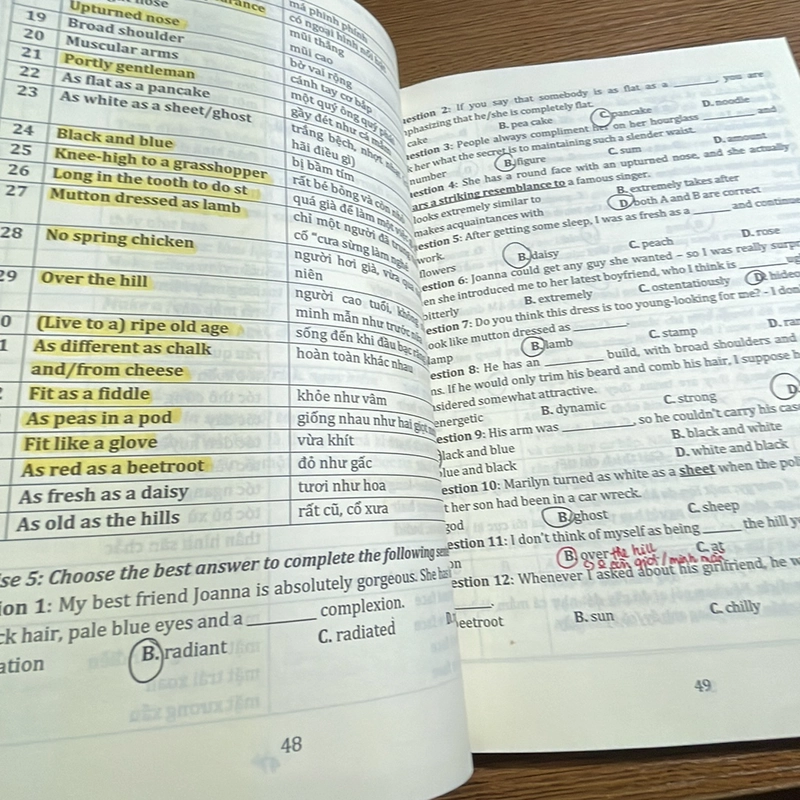 nose
19 Upturned nose
20 Broad shoulder
21 Muscular arms
22 Portly gentleman
23 As flat as a pancake
As white as a sheet/ghost
24 Black and blue
25 Knee-high to a grasshopper
26 Long in the tooth to do st
27 Mutton dressed as lamb
28 No spring chicken
29 Over the hill
0 (Live to a) ripe old age
1 As different as chalk
and/from cheese
Fit as a fiddle
As peas in a pod
Fit like a glove
As red as a beetroot
As fresh as a daisy
As old as the hills
má phinh phính
có ngoại hình nổi
mũi thẳng
mũi cao
bờ vai rộng
cánh tay cơ bắp
một quý ông quý phái
gầy đét như cá mắm
trắng bệch, nhợt
hãi điều gì)
bị bầm tím
rất bé bỏng và còn
quá già để làm một việc
chỉ một người đã
cố "cưa sừng làm nghé
người hơi già, vừa qua
niên
người cao tuổi, không
minh mẫn như trước
sống đến khi đầu bạc răng
hoàn toàn khác nhau
khỏe như vâm
giống nhau như hai giọt
vừa khít
đỏ như gấc
tươi như hoa
rất cũ, cổ xưa
se 5: Choose the best answer to complete the following
ion 1: My best friend Joanna is absolutely gorgeous. She has
ck hair, pale blue eyes and a ______ complexion.
ation B. radiant C. radiated D.
48
estion 2: If you say that somebody is as flat as a ______, you are
phasizing that he/she is completely flat.
cake B. pea cake C. pancake D. noodle
estion 3: People always compliment her on her hourglass ______ and
k her what the secret is to maintaining such a slender waist.
number B. figure C. sum D. amount
estion 4: She has a round face with an upturned nose, and she actually
ars a striking resemblance to a famous singer.
looks extremely similar to B. extremely takes after
makes acquaintances with D. both A and B are correct
estion 5: After getting some sleep, I was as fresh as a ______ and continue
work.
flowers B. daisy C. peach D. rose
estion 6: Joanna could get any guy she wanted – so I was really surp
en she introduced me to her latest boyfriend, who I think is ______ ug
bitterly B. extremely C. ostentatiously D. hideo
estion 7: Do you think this dress is too young-looking for me? - I don
ook like mutton dressed as ______.
lamp B. lamb C. stamp D. ra
estion 8: He has an ______ build, with broad shoulders and
ns. If he would only trim his beard and comb his hair, I suppose h
nsidered somewhat attractive.
energetic B. dynamic C. strong D.
estion 9: His arm was ______, so he couldn't carry his case
black and blue B. black and white
blue and black D. white and black
estion 10: Marilyn turned as white as a sheet when the poli
t her son had been in a car wreck.
god B. ghost C. sheep
estion 11: I don't think of myself as being ______ the hill y
on B. over the hill C. at
giọt / minh mẫn
estion 12: Whenever I asked about his girlfriend, he w
______.
beetroot B. sun C. chilly
49